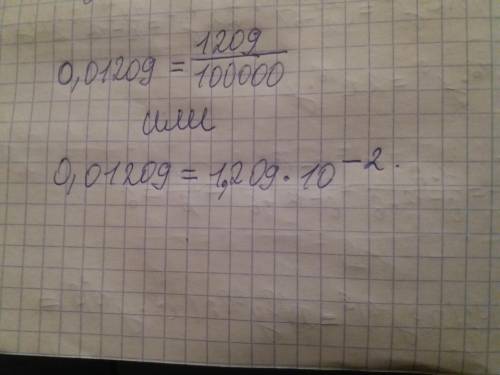 0,01209 = 1209/100000
или
0,01209 = 1,209 · 10⁻².